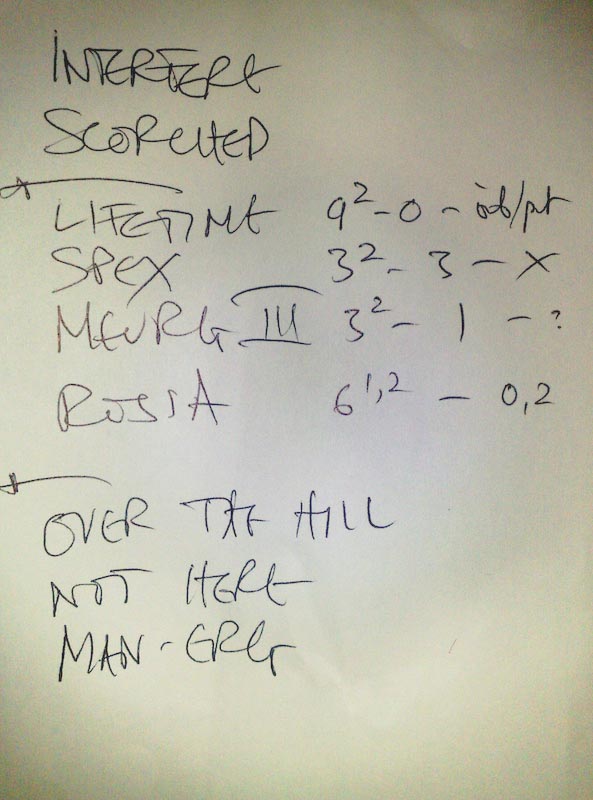 INTERFERE
SCORCHED
LIFETIME 9²-0-
SPEX 3²-3-X
MEURG III 3²-1-?
ROSIA 6¹,²-0,2
OVER THE HILL
NOT HERE
MAN-ERG